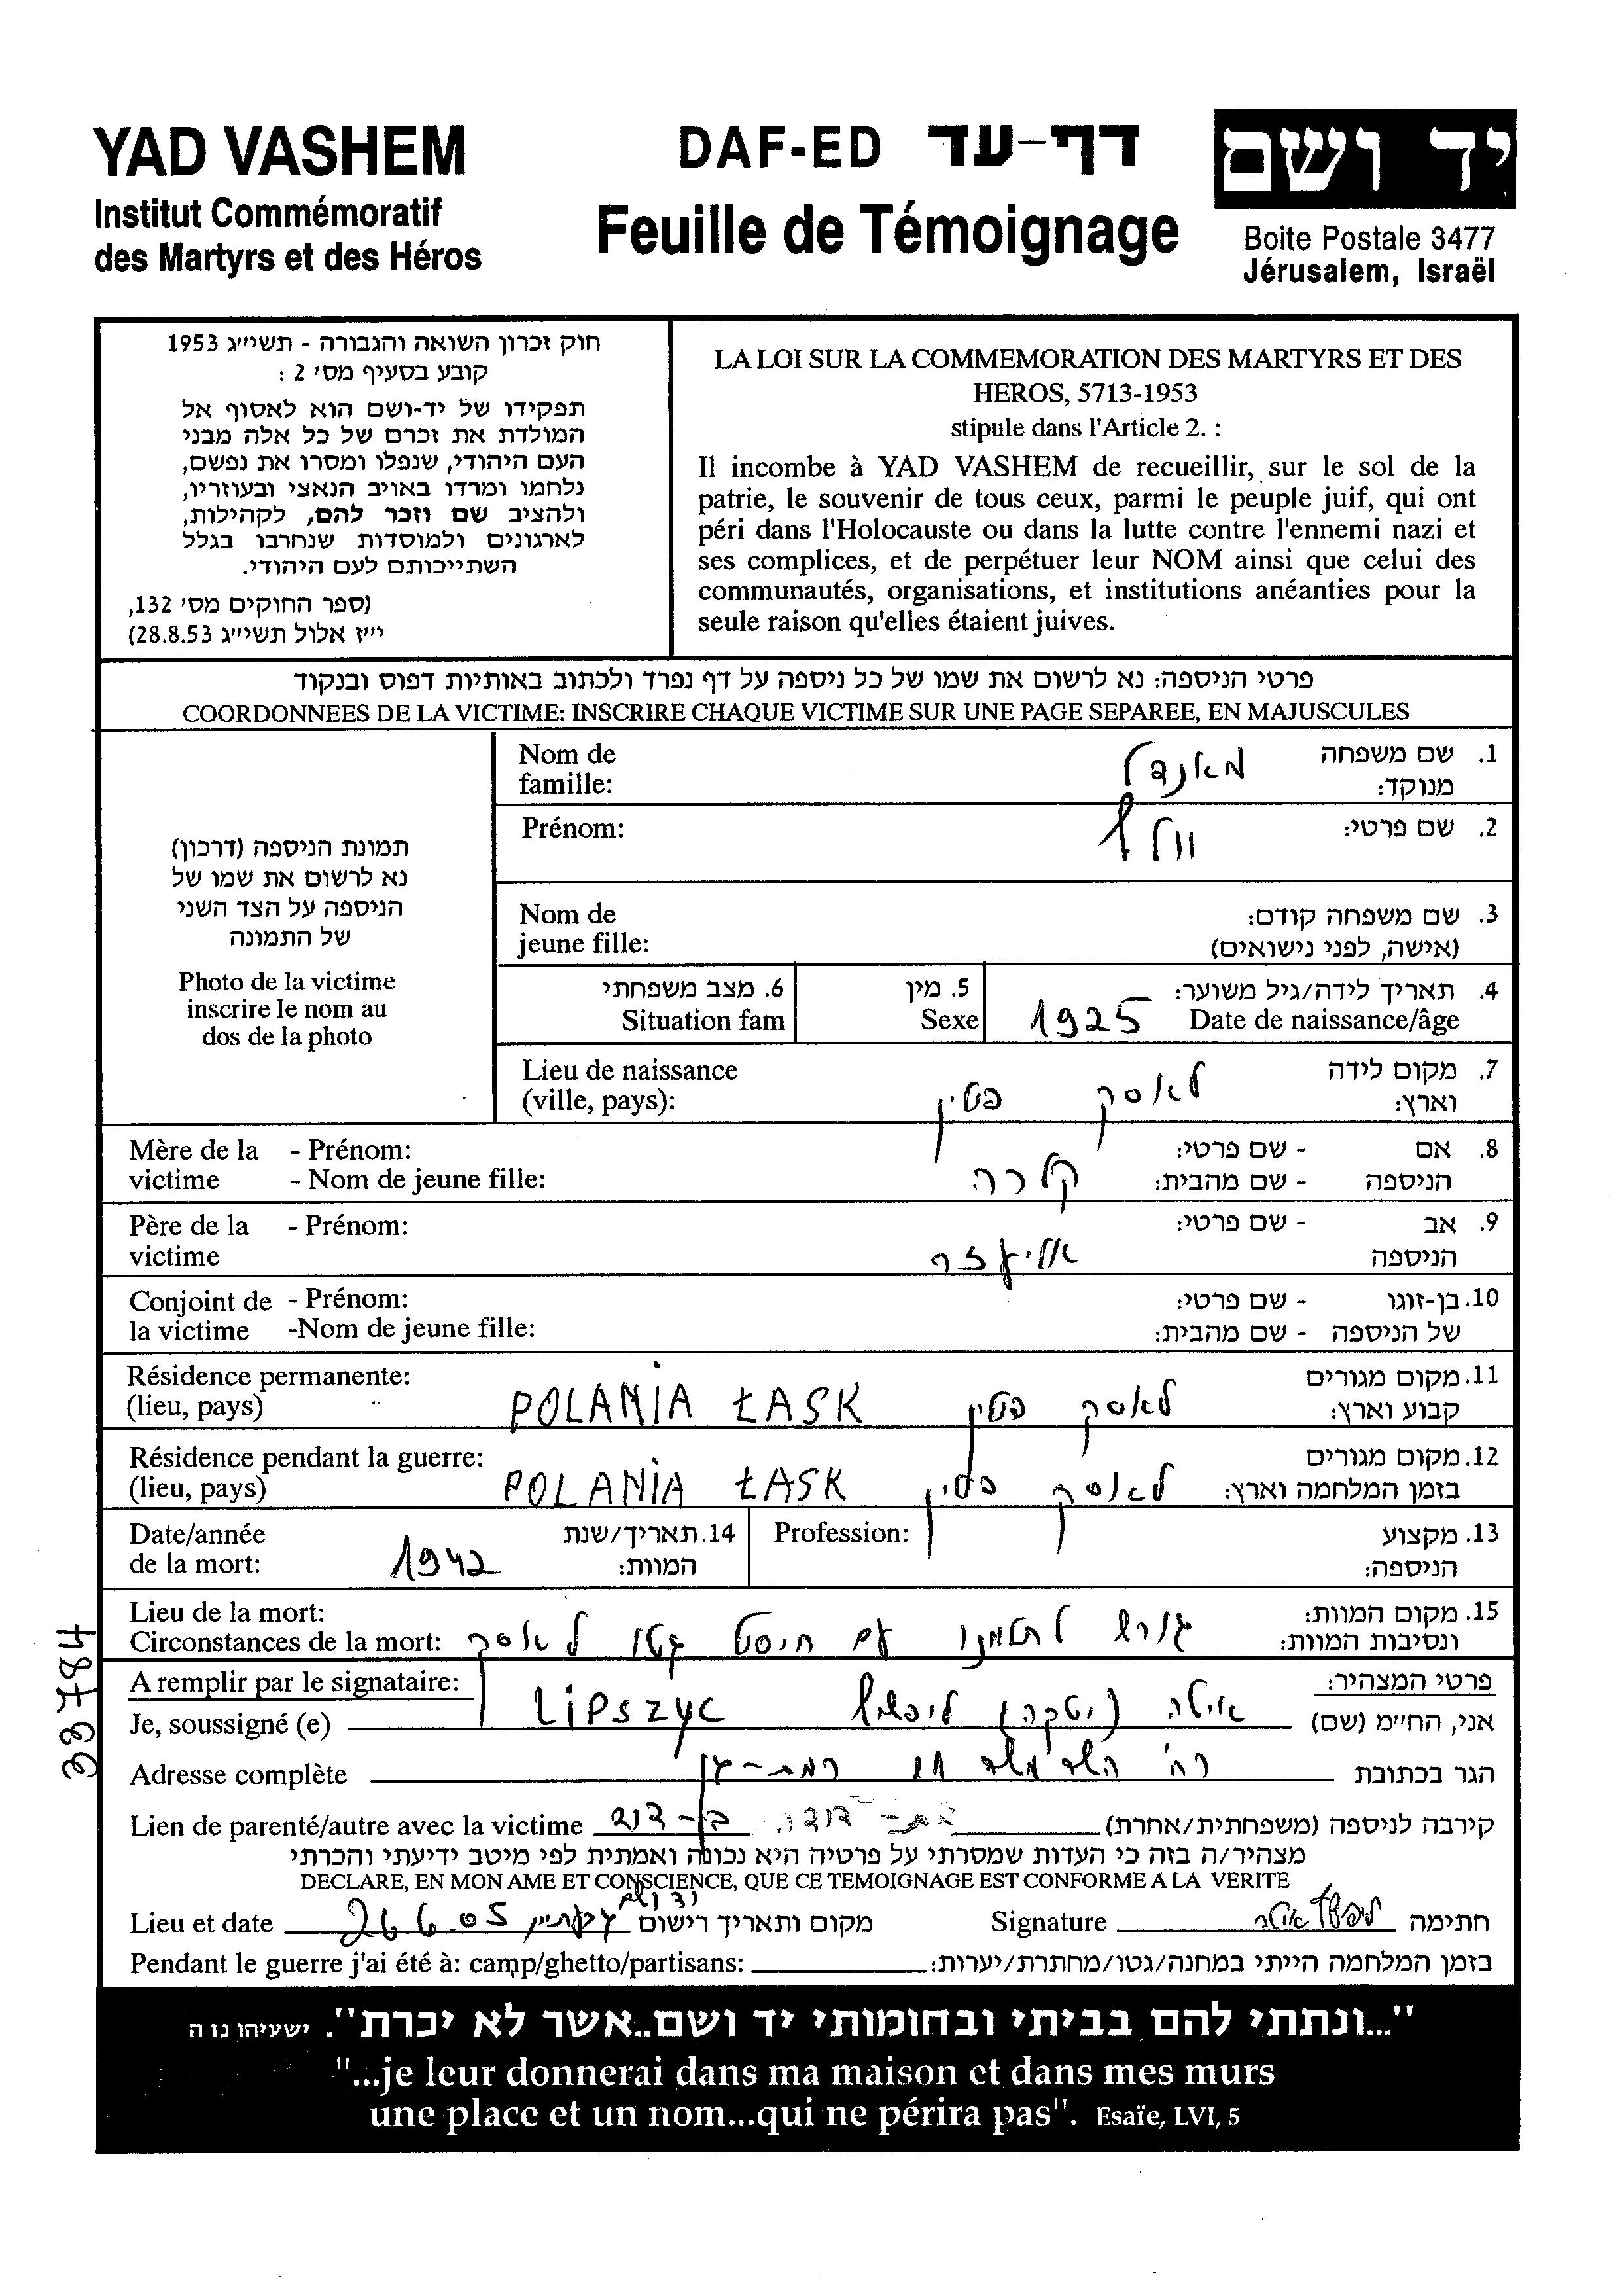 YAD VASHEM
Institut Commémoratif
des Martyrs et des Héros
DAF-ED דף-עד
Feuille de Témoignage
יד ושם
Boite Postale 3477
Jérusalem, Israël
חוק זכרון השואה והגבורה - תשי״ג 1953
קובע בסעיף מס׳ 2 :
תפקידו של יד-ושם הוא לאסוף אל
המולדת את זכרם של כל אלה מבני
העם היהודי, שנפלו ומסרו את נפשם,
נלחמו ומרדו באויב הנאצי ובעוזריו,
ולהציב שם וזכר להם, לקהילות,
לארגונים ולמוסדות שנחרבו בגלל
השתייכותם לעם היהודי.
(ספר החוקים מס׳ 132,
י״ז אלול תשי״ג 28.8.53)
LA LOI SUR LA COMMEMORATION DES MARTYRS ET DES
HEROS, 5713-1953
stipule dans l'Article 2. :
Il incombe à YAD VASHEM de recueillir, sur le sol de la
patrie, le souvenir de tous ceux, parmi le peuple juif, qui ont
péri dans l'Holocauste ou dans la lutte contre l'ennemi nazi et
ses complices, et de perpétuer leur NOM ainsi que celui des
communautés, organisations, et institutions anéanties pour la
seule raison qu'elles étaient juives.
פרטי הניספה: נא לרשום את שמו של כל ניספה על דף נפרד ולכתוב באותיות דפוס ובנקוד
COORDONNEES DE LA VICTIME: INSCRIRE CHAQUE VICTIME SUR UNE PAGE SEPAREE, EN MAJUSCULES
תמונת הניספה (דרכון)
נא לרשום את שמו של
הניספה על הצד השני
של התמונה
Photo de la victime
inscrire le nom au
dos de la photo
1. שם משפחה
מנוקד: מאנדל
Nom de
famille:
2. שם פרטי: וולף
Prénom:
3. שם משפחה קודם:
(אישה, לפני נישואים)
Nom de
jeune fille:
4. תאריך לידה/גיל משוער:
Date de naissance/âge 1925
5. מין
Sexe
6. מצב משפחתי
Situation fam
7. מקום לידה
וארץ: לאסק פולין
Lieu de naissance
(ville, pays):
8. אם - שם פרטי:
הניספה - שם מהבית: קלרה
Mère de la - Prénom:
victime - Nom de jeune fille:
9. אב - שם פרטי:
הניספה אליעזר
Père de la - Prénom:
victime
10. בן-זוגו - שם פרטי:
של הניספה - שם מהבית:
Conjoint de - Prénom:
la victime -Nom de jeune fille:
11. מקום מגורים
קבוע וארץ: לאסק פולין
Résidence permanente:
(lieu, pays) POLANIA ŁASK
12. מקום מגורים
בזמן המלחמה וארץ: לאסק פולין
Résidence pendant la guerre:
(lieu, pays) POLANIA ŁASK
13. מקצוע
הניספה:
Profession:
14. תאריך/שנת
המוות:
Date/année
de la mort: 1942
15. מקום המוות:
ונסיבות המוות: גורש לחלמנו עם חיסול גטו לאסק
Lieu de la mort:
Circonstances de la mort:
פרטי המצהיר:
A remplir par le signataire:
אני, החי״מ (שם) אילה ליפשיץ
Je, soussigné (e) Lipszyc
הגר בכתובת רח׳ 11 רמת-גן
Adresse complète
קירבה לניספה (משפחתית/אחרת) בת-דודה. בן-דוד
Lien de parenté/autre avec la victime
מצהיר/ה בזה כי העדות שמסרתי על פרטיה היא נכונה ואמתית לפי מיטב ידיעתי והכרתי
DECLARE, EN MON AME ET CONSCIENCE, QUE CE TEMOIGNAGE EST CONFORME A LA VERITE
Lieu et date 26.6.05 מקום ותאריך רישום
Signature ליפשיץ אילה חתימה
Pendant le guerre j'ai été à: camp/ghetto/partisans: בזמן המלחמה הייתי במחנה/גטו/מחתרת/יערות:
"...ונתתי להם בביתי ובחומותי יד ושם..אשר לא יכרת". ישעיהו נו ה
"...je leur donnerai dans ma maison et dans mes murs
une place et un nom...qui ne périra pas". Esaïe, LVI, 5